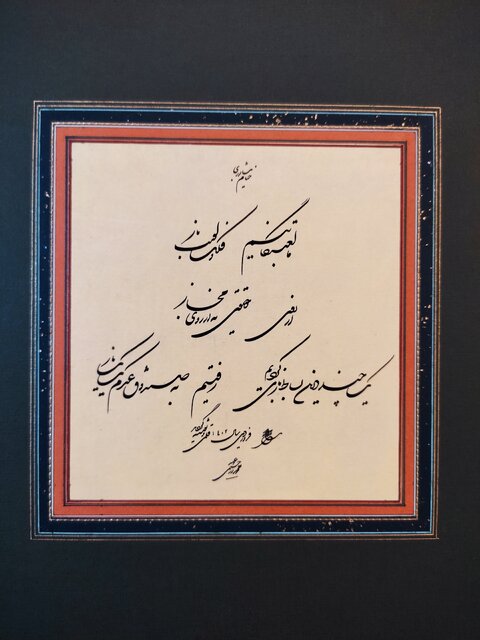 خیام نیشابوری
ما لعبتگانیم و فلک لعبت باز
از روی حقیقتی نه از روی مجاز
یک چند درین بساط بازی کردیم رفتیم به صندوق عدم یک یک باز
سال ۱۴۰۲